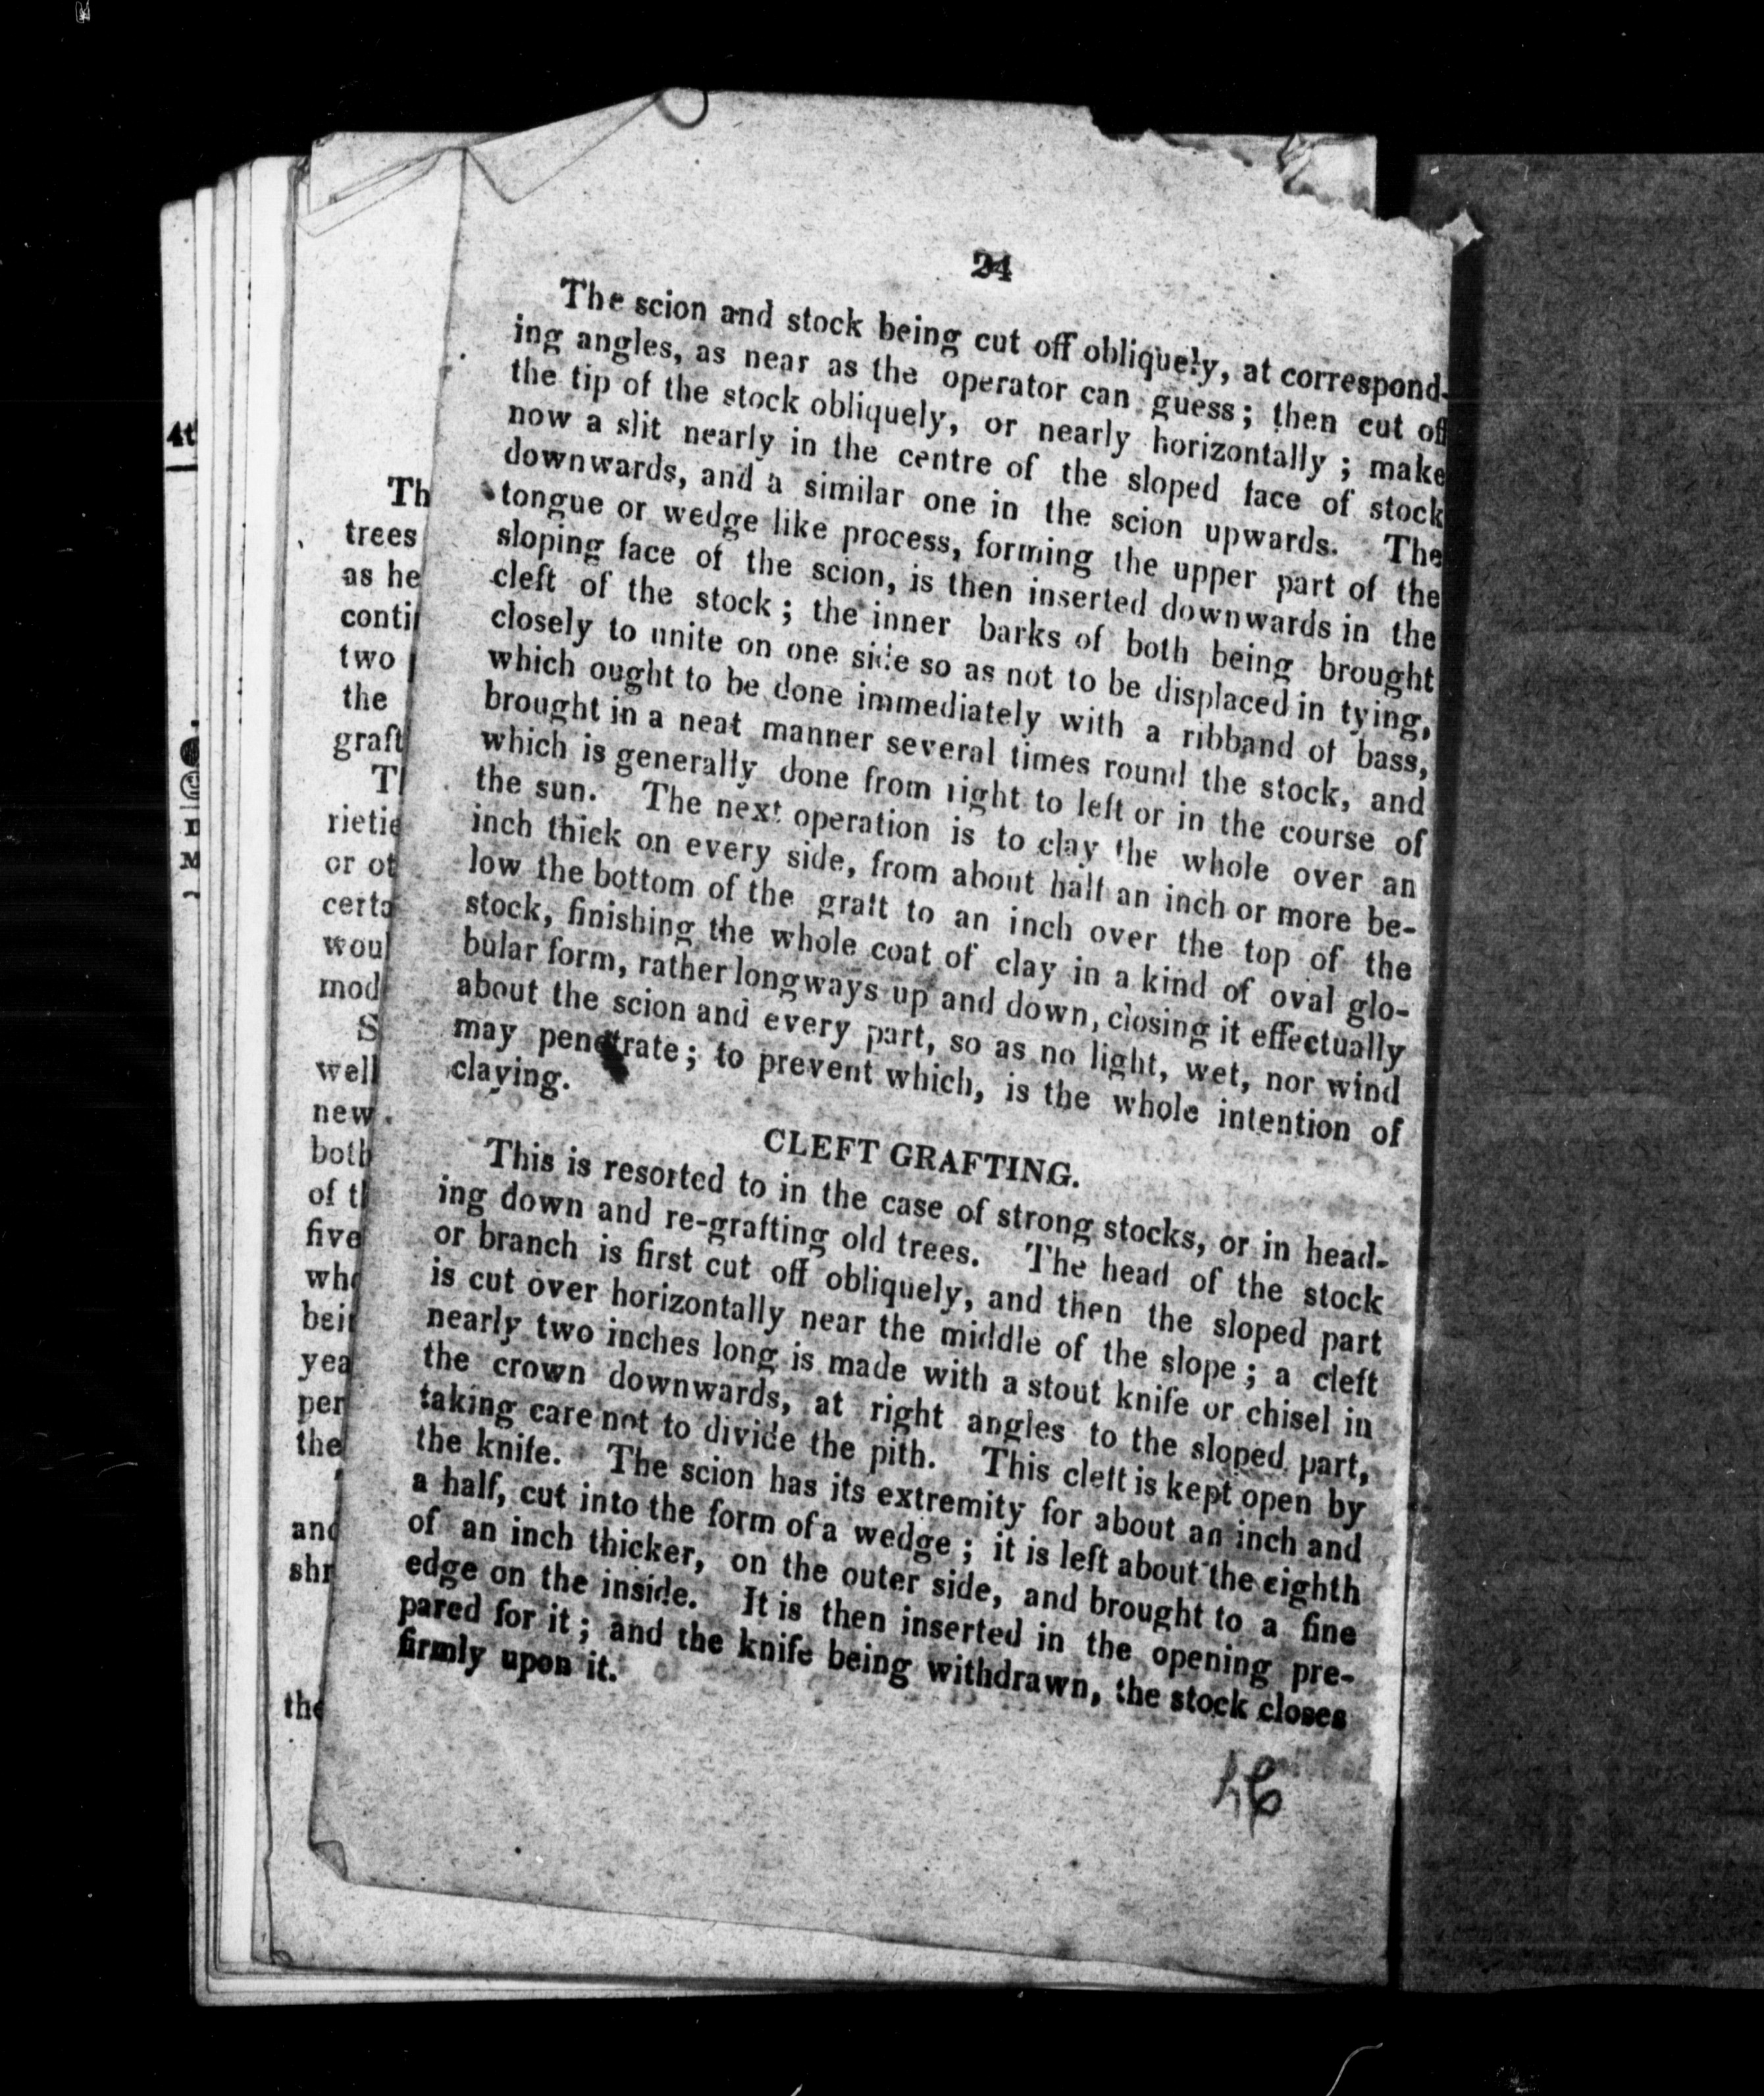 24
The scion and stock being cut off obliquely, at correspond-
ing angles, as near as the operator can guess; then cut off
the tip of the stock obliquely, or nearly horizontally; make
now a slit nearly in the centre of the sloped face of stock
downwards, and a similar one in the scion upwards. The
tongue or wedge like process, forming the upper part of the
sloping face of the scion, is then inserted downwards in the
cleft of the stock; the inner barks of both being brought
closely to unite on one side so as not to be displaced in tying,
which ought to be done immediately with a ribband of bass,
brought in a neat manner several times round the stock, and
which is generally done from right to left or in the course of
the sun. The next operation is to clay the whole over an
inch thick on every side, from about half an inch or more be-
low the bottom of the graft to an inch over the top of the
stock, finishing the whole coat of clay in a kind of oval glo-
bular form, rather longways up and down, closing it effectually
about the scion and every part, so as no light, wet, nor wind
may penetrate; to prevent which, is the whole intention of
claying.
CLEFT GRAFTING.
This is resorted to in the case of strong stocks, or in head-
ing down and re-grafting old trees. The head of the stock
or branch is first cut off obliquely, and then the sloped part
is cut over horizontally near the middle of the slope; a cleft
nearly two inches long is made with a stout knife or chisel in
the crown downwards, at right angles to the sloped part,
taking care not to divide the pith. This cleft is kept open by
the knife. The scion has its extremity for about an inch and
a half, cut into the form of a wedge; it is left about the eighth
of an inch thicker, on the outer side, and brought to a fine
edge on the inside. It is then inserted in the opening pre-
pared for it; and the knife being withdrawn, the stock closes
firmly upon it.
4t
Th
trees
as he
conti
two
the
graft
T
rietie
or ot
certa
woul
mod
S
well
new
both
of t
five
who
bei
yea
per
the
and
shr
the